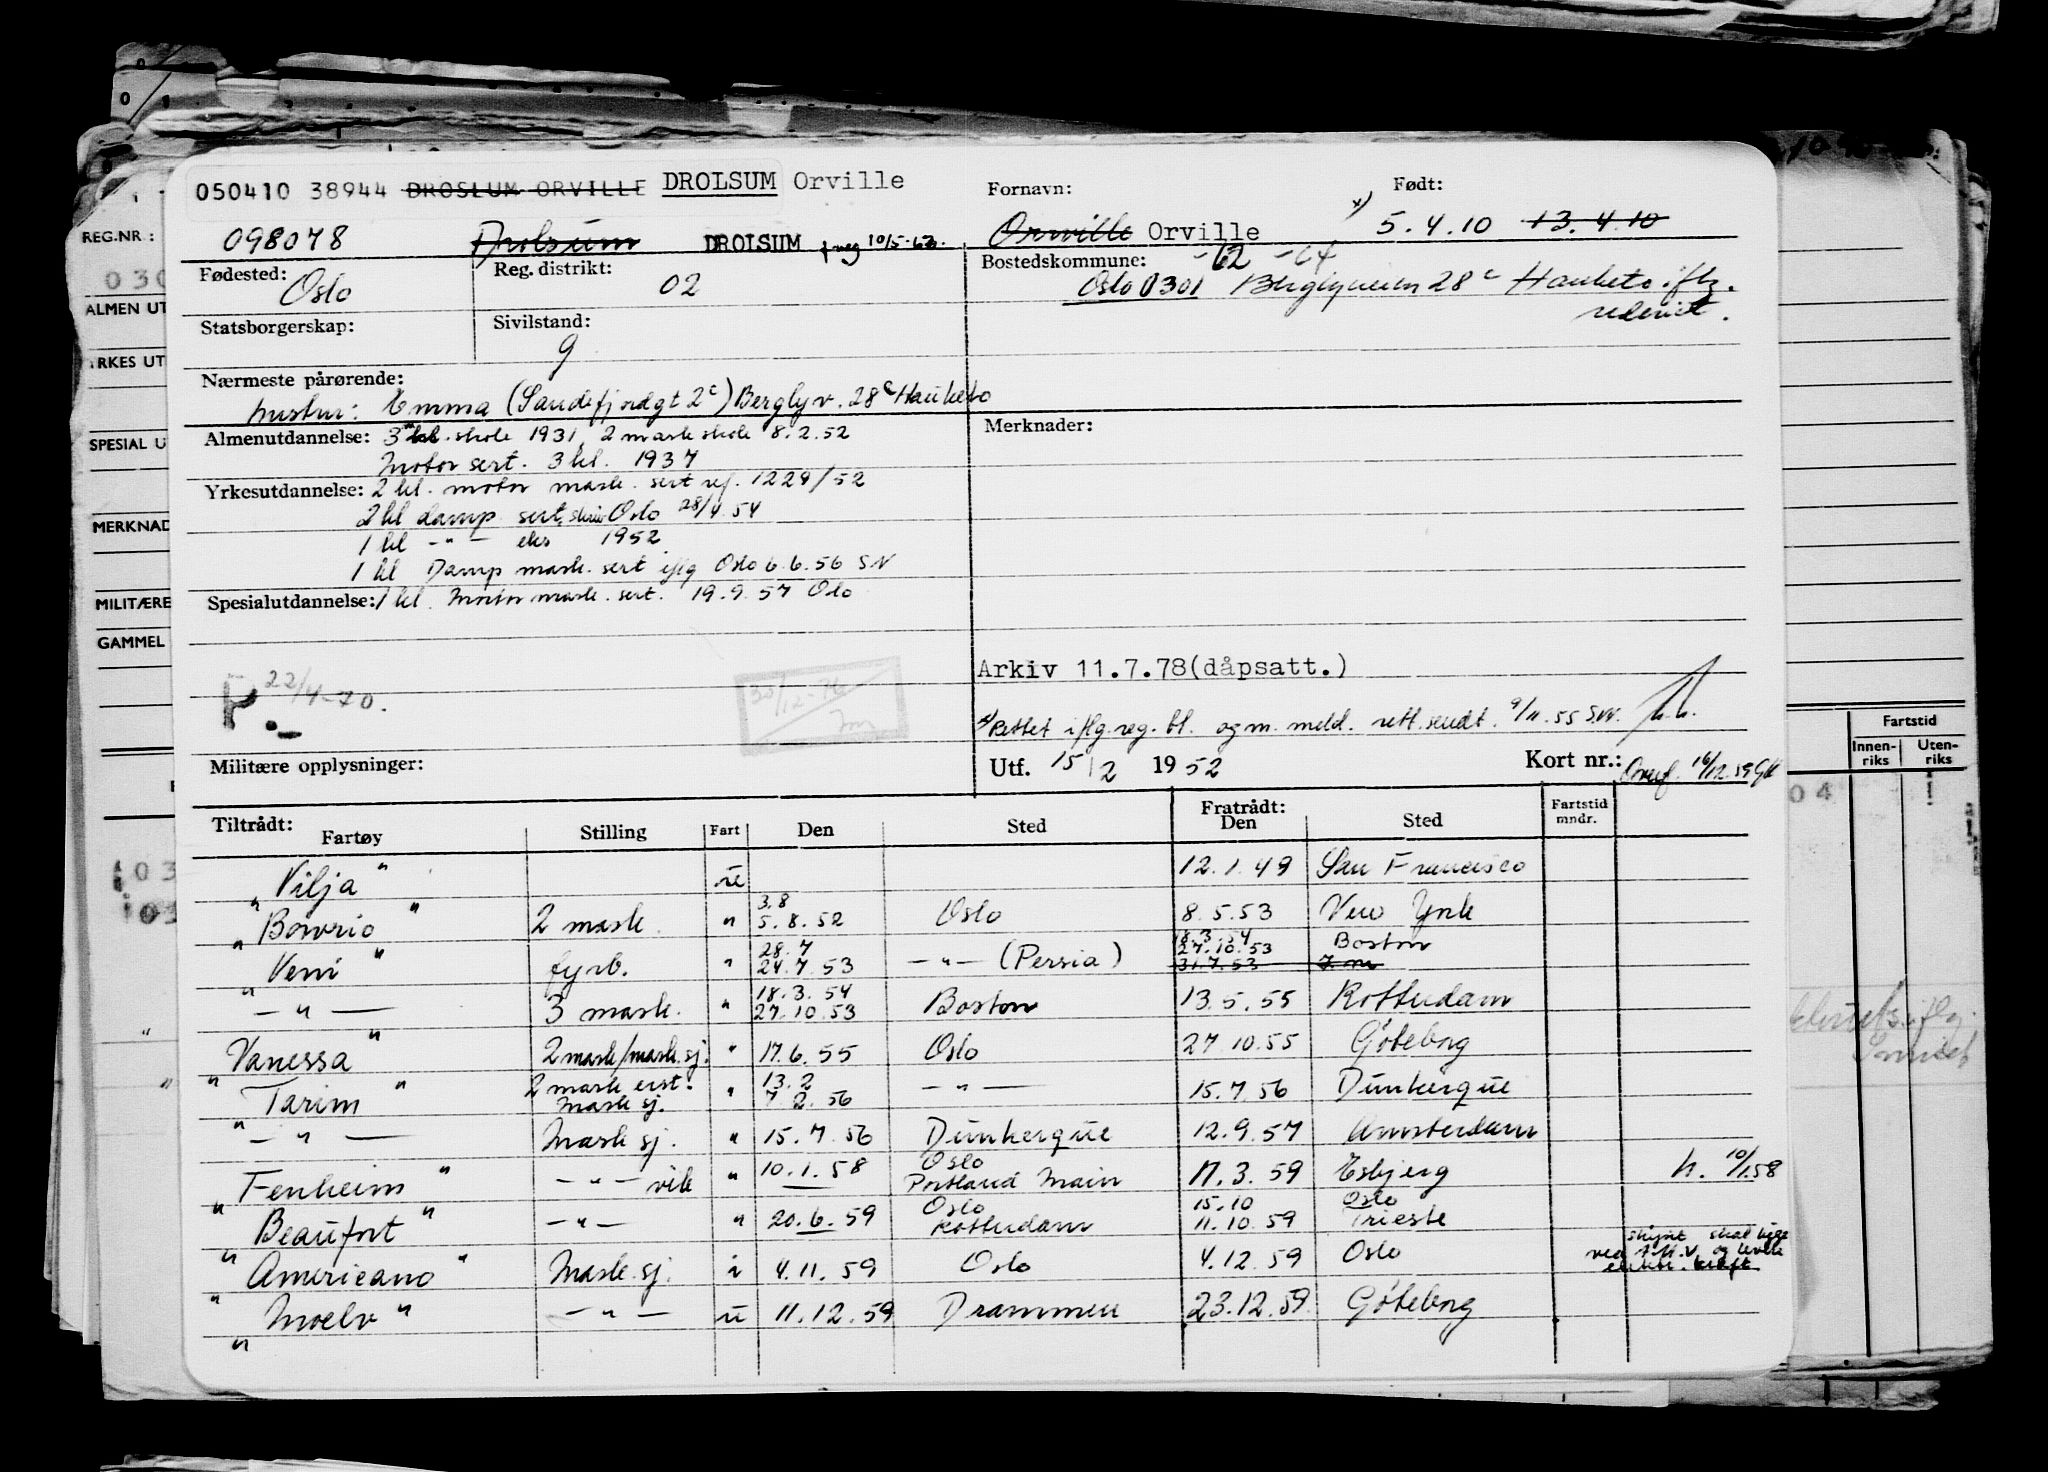 050410 38944 DROSLUM ORVILLE DROLSUM Orville
Fornavn:
Født:
098078 Drolsum DROLSUM
Orville Orville
5.4.10 13.4.10
Fødested: Oslo
Reg. distrikt: 02
Bostedskommune: -62 -64
Oslo 0301 Berglyveien 28 c Hauketo iflg.
Statsborgerskap:
Sivilstand: g
Nærmeste pårørende:
hustru: Emma (Sandefjordgt 2c) Berglyv. 28 c Hauketo
Almenutdannelse: 3 kl. skole 1931, 2 mask skole 8.2.52
Motor sert. 3 kl. 1937
Merknader:
Yrkesutdannelse: 2 kl. motor mask. sert ref. 1229/52
2 kl damp sert. Oslo 28/4 54
1 kl - " - eks 1952
1 kl Damp mask. sert iflg Oslo 6.6.56 SN
Spesialutdannelse: 1 kl. Motor mask. sert. 19.9.57 Oslo
P. 22/4-70.
Arkiv 11.7.78(dåpsatt.)
x) Rettet iflg. reg. bl. og m. meld. rett. sendt. 9/11.55 S.W.
Militære opplysninger:
Utf. 15/2 1952
Kort nr.:
Tiltrådt:
Fartøy Stilling Fart Den Sted Fratrådt: Den Sted Fartstid mndr.
"Vilja" u 12.1.49 San Francisco
"Bowrio" 2 mask. " 3.8 5.8.52 Oslo 8.5.53 New York
"Veni" fyrb. " 28.7 24.7.53 - " - (Persia) 18.3.54 27.10.53 31.7.53 Boston
- " - 3 mask. " 18.3.54 27.10.53 Boston 13.5.55 Rotterdam
"Vanessa" 2 mask/mask.sj. " 17.6.55 Oslo 27.10.55 Göteborg
"Tarim" 2 mask erst. Mask sj. " 13.2 7.2.56 - " - 15.7.56 Dunkerque
- " - Mask sj. " 15.7.56 Dunkerque 12.9.57 Amsterdam
"Fenheim" - " - vik " 10.1.58 Oslo Portland Main 17.3.59 Esbjerg h. 10/1.58
"Beaufort" - " - " 20.6.59 Oslo Rotterdam 15.10 11.10.59 Oslo Trieste
"Americano" Mask. sj. i 4.11.59 Oslo 4.12.59 Oslo
"Moelv" - " - u 11.12.59 Drammen 23.12.59 Göteborg
REG.NR :
030
ALMEN UT
YRKES UT
SPESIAL U
MERKNAD
MILITÆRE
GAMMEL
Fartstid
Innenriks
Utenriks
04